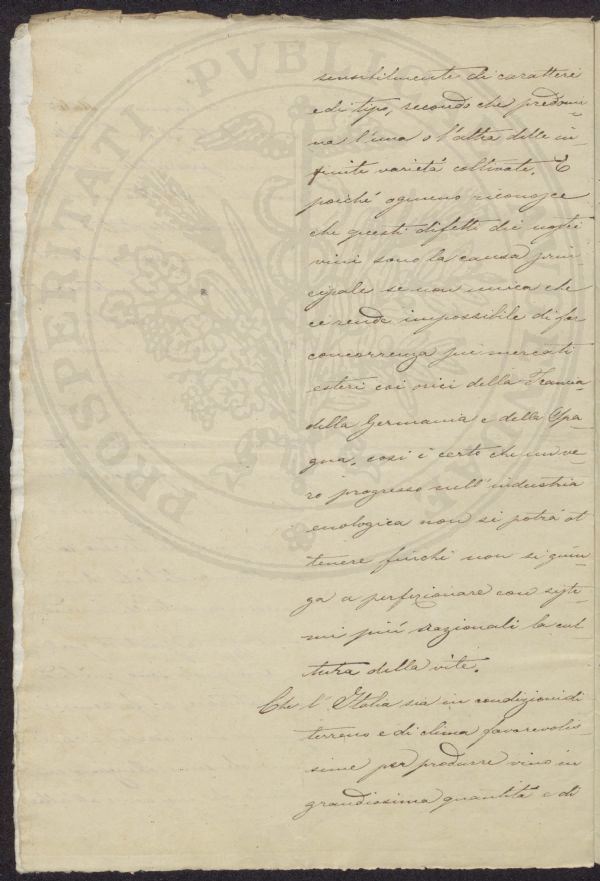 sensibilmente di caratteri
e di tipo, secondo che predomi-
na l'una o l'altra delle in-
finite varietà coltivate. E
poiché ognuno riconosce
che questi difetti dei nostri
vini sono la causa prin-
cipale se non unica che
ce rende impossibile di far
concorrenza sui mercati
esteri coi vini della Francia
della Germania e della Spa-
gna, così è certo che un ve-
ro progresso nell'industria
enologica non si potrà ot-
tenere finché non si giun-
ga a perfezionare con siste-
mi più razionali la cul
tura della vite.
Che l'Italia sia in condizioni di
terreno e di clima favorevolis-
sime per produrre vino in
grandissima quantità e di
PROSPERITATI PVBLICAE